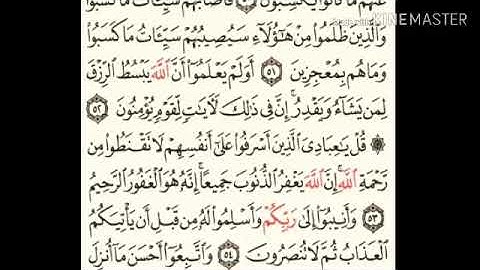 عَنْهُم مَّا كَانُوا۟ يَكْسِبُونَ ٥٠ فَأَصَابَهُمْ سَيِّـَٔاتُ مَا كَسَبُوا۟
KINEMASTER
وَٱلَّذِينَ ظَلَمُوا۟ مِنْ هَـٰٓؤُلَآءِ سَيُصِيبُهُمْ سَيِّـَٔاتُ مَا كَسَبُوا۟
وَمَا هُم بِمُعْجِزِينَ ٥١ أَوَلَمْ يَعْلَمُوٓا۟ أَنَّ ٱللَّهَ يَبْسُطُ ٱلرِّزْقَ
لِمَن يَشَآءُ وَيَقْدِرُ ۚ إِنَّ فِى ذَٰلِكَ لَـَٔايَـٰتٍ لِّقَوْمٍ يُؤْمِنُونَ ٥٢
۞ قُلْ يَـٰعِبَادِىَ ٱلَّذِينَ أَسْرَفُوا۟ عَلَىٰٓ أَنفُسِهِمْ لَا تَقْنَطُوا۟ مِن
رَّحْمَةِ ٱللَّهِ ۚ إِنَّ ٱللَّهَ يَغْفِرُ ٱلذُّنُوبَ جَمِيعًا ۚ إِنَّهُۥ هُوَ ٱلْغَفُورُ ٱلرَّحِيمُ
٥٣ وَأَنِيبُوٓا۟ إِلَىٰ رَبِّكُمْ وَأَسْلِمُوا۟ لَهُۥ مِن قَبْلِ أَن يَأْتِيَكُمُ
ٱلْعَذَابُ ثُمَّ لَا تُنصَرُونَ ٥٤ وَٱتَّبِعُوٓا۟ أَحْسَنَ مَآ أُنزِلَ